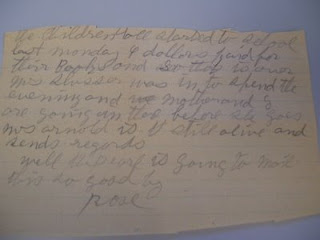 the children all started to school
last monday 4 dollars paid for
their Books and so they is over
mrs was in to spend the
evening and my husband &
are going up there before she goes
mrs arnold is still alive and
sends regards
well this is going to make
this so good by
rose